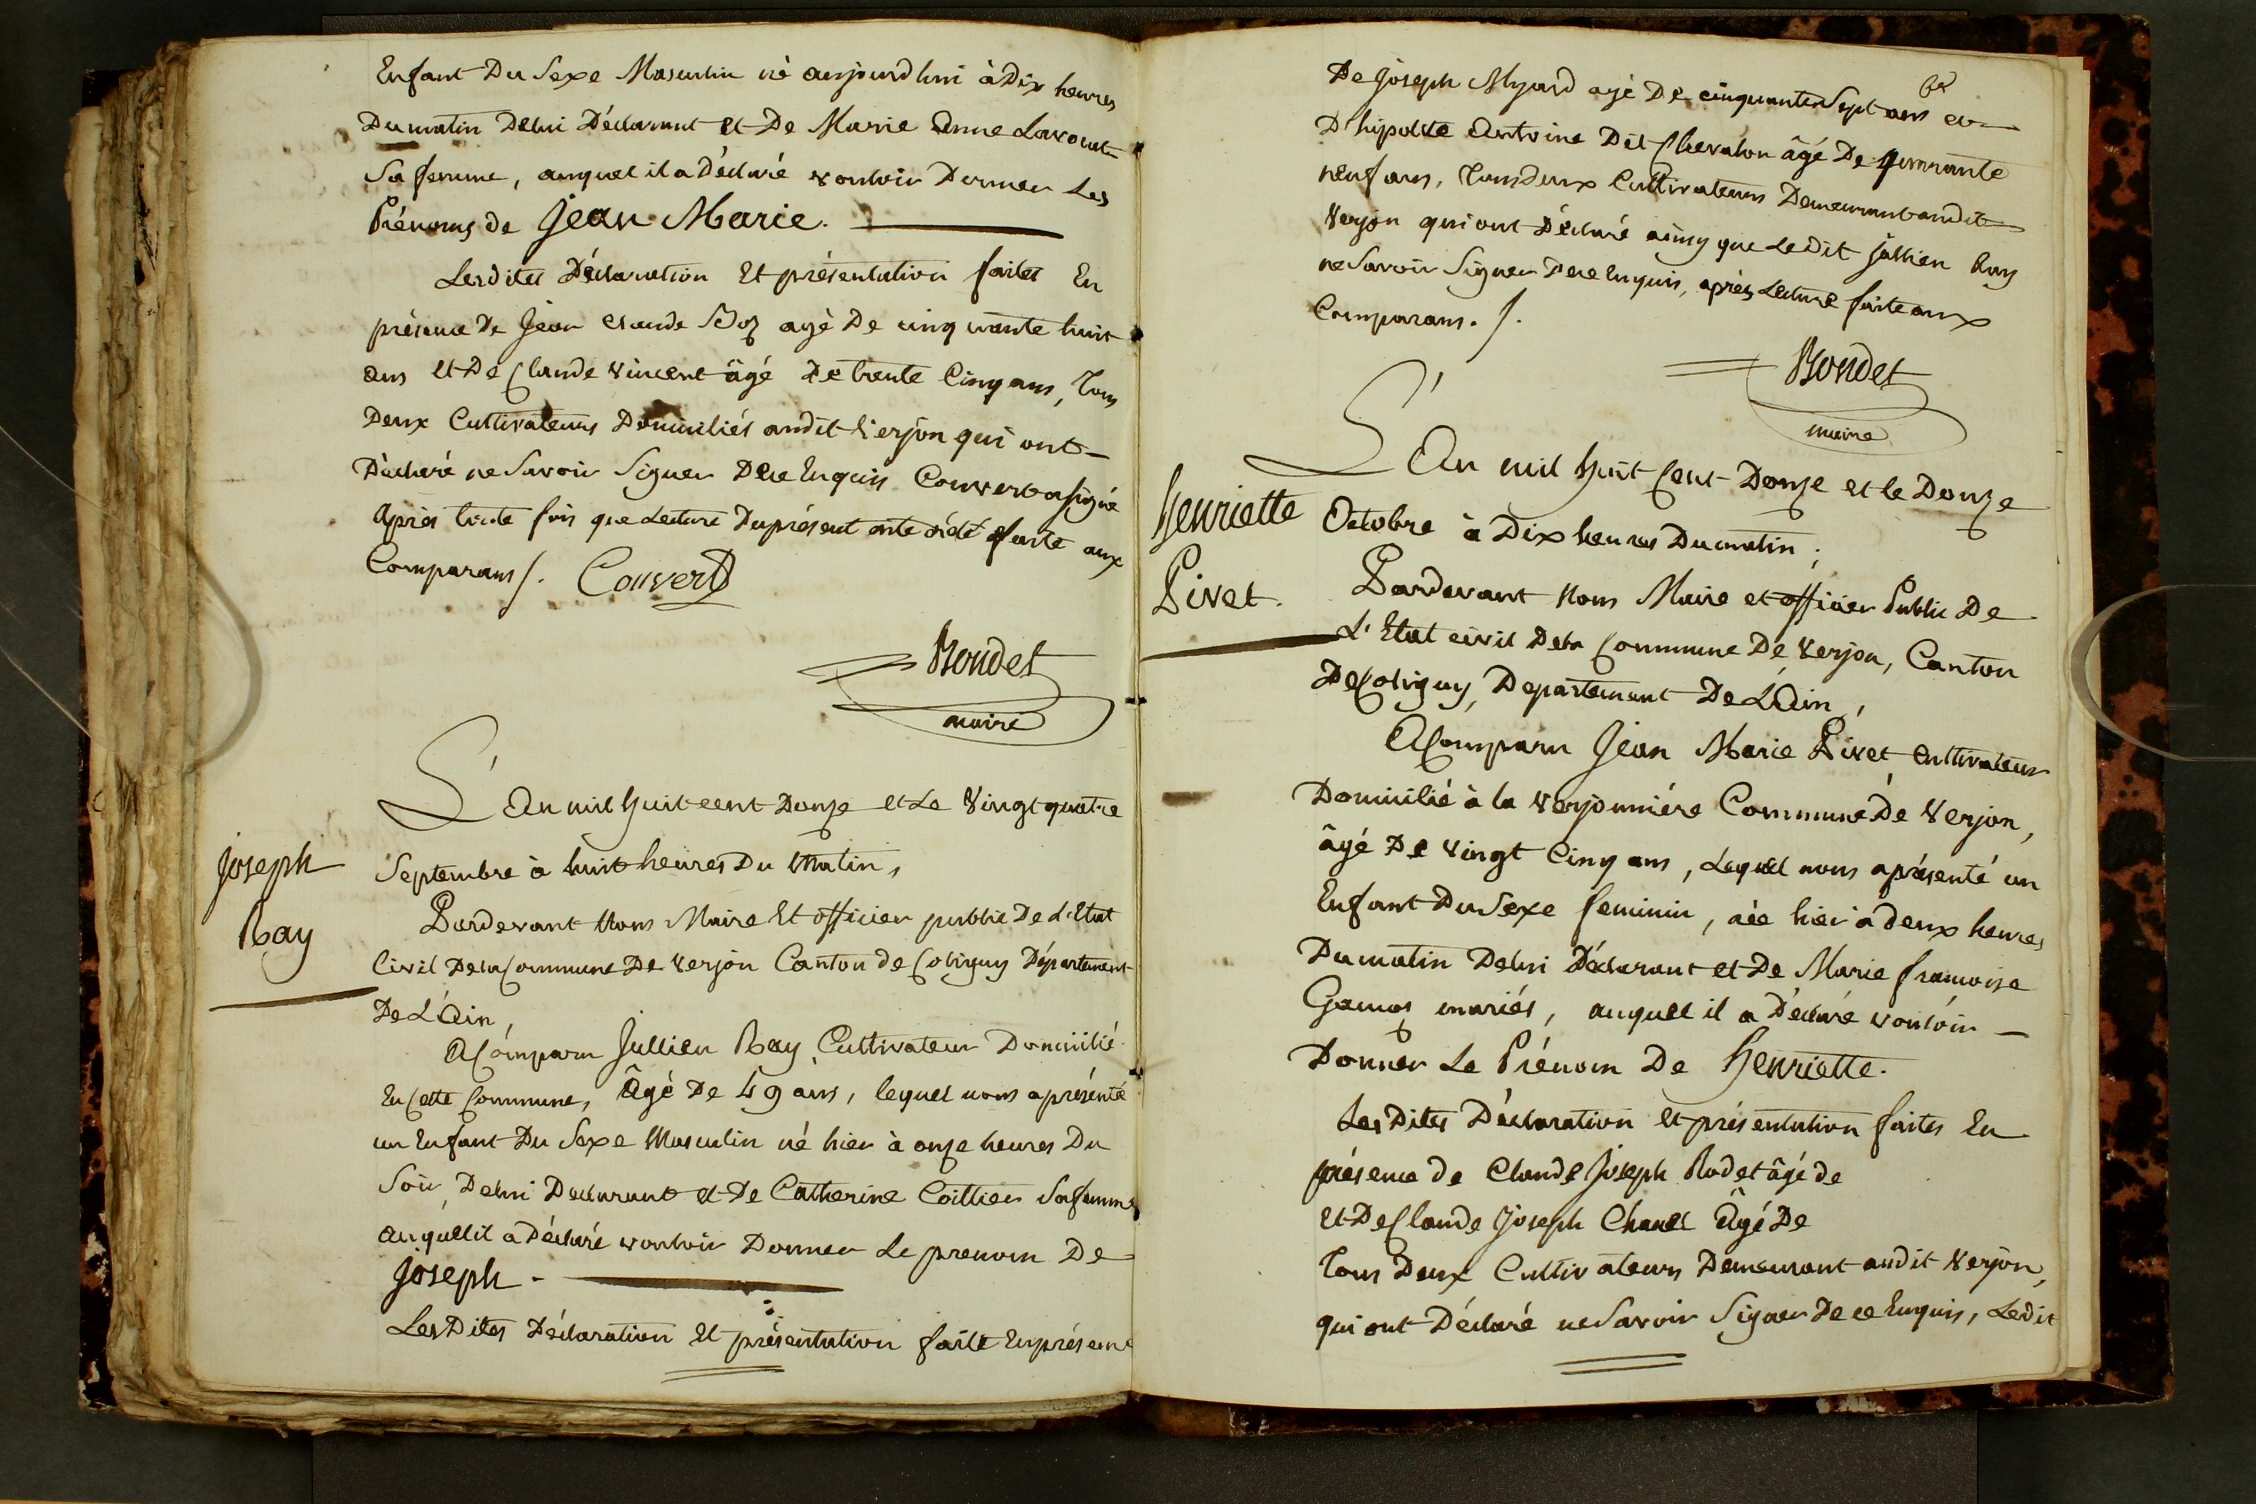 Enfant Du Sexe Masculin né aujourd'hui à Dix heures
Du matin Delui Déclarant et De Marie Anne
Sa femme, auquel il a Déclaré vouloir Donner Les
Prénoms de Jean Marie.
Lesdites Déclaration Et présentation faites En
présence De Jean Claude agé De cinquante huit
ans et De Claude Vincent âgé De trente Cinq ans, Tous
Deux Cultivateurs Domiciliés audit Verjon qui ont
Déclaré ne Savoir Signer De ce Enquis Convert a signé
Après toute fois que Lecture Du présent acte a été faite aux
Comparans /. Convert
Bondet
maire
L'An mil huit cent Douze et Le Vingt quatre
Septembre à huit heures Du Matin,
Joseph
Ray
Pardevant Nous Maire Et officier public De L'Etat
Civil De la Commune De Verjon Canton de Coligny Département
De L'Ain,
A Comparu Jullien Ray Cultivateur Domicilié
En Cette Commune, Âgé De 49 ans, lequel nous a présenté
un Enfant Du Sexe Masculin né hier à onze heures Du
Soir, Delui Declarant et De Catherine Coittier Sa femme
auquel il a Déclaré vouloir Donner Le prenom De
Joseph.
Les Dites Déclaration Et présentation faite En présence
De Joseph Myard agé De cinquante Sept ans et
D'hipolite Antoine Dit Chevalon âgé De quarante
neuf ans, Tous Deux Cultivateurs Demeurant audit
Verjon qui ont Déclaré ainsy que Le Dit Jullien Ray
ne Savoir Signer De ce Enquis, après Lecture faite aux
Comparans. /.
Bondet
maire
L'An mil huit Cent Douze et le Douze
Octobre à Dix heures Du matin;
Henriette
Pivet.
Pardevant Nous Maire et officier Public De
L'Etat civil De la Commune De Verjon, Canton
De Coligny, Departement De L'Ain,
A Comparu Jean Marie Pivet Cultivateur
Domicilié à la Verjonnière Commune De Verjon,
âgé De Vingt Cinq ans, Lequel nous a présenté un
Enfant Du Sexe feminin, née hier à deux heures
Du matin Delui Déclarant et De Marie francoise
mariés, auquel il a Déclaré vouloir
Donner Le Prénom De Henriette.
Les Dites Déclaration Et présentation faites En
présence de Claude Joseph Rodet âgé de
Et De Claude Joseph Chanel Âgé De
Tous Deux Cultivateurs Demeurant audit Verjon,
qui ont Déclaré ne Savoir Signer De ce Enquis, Ledit